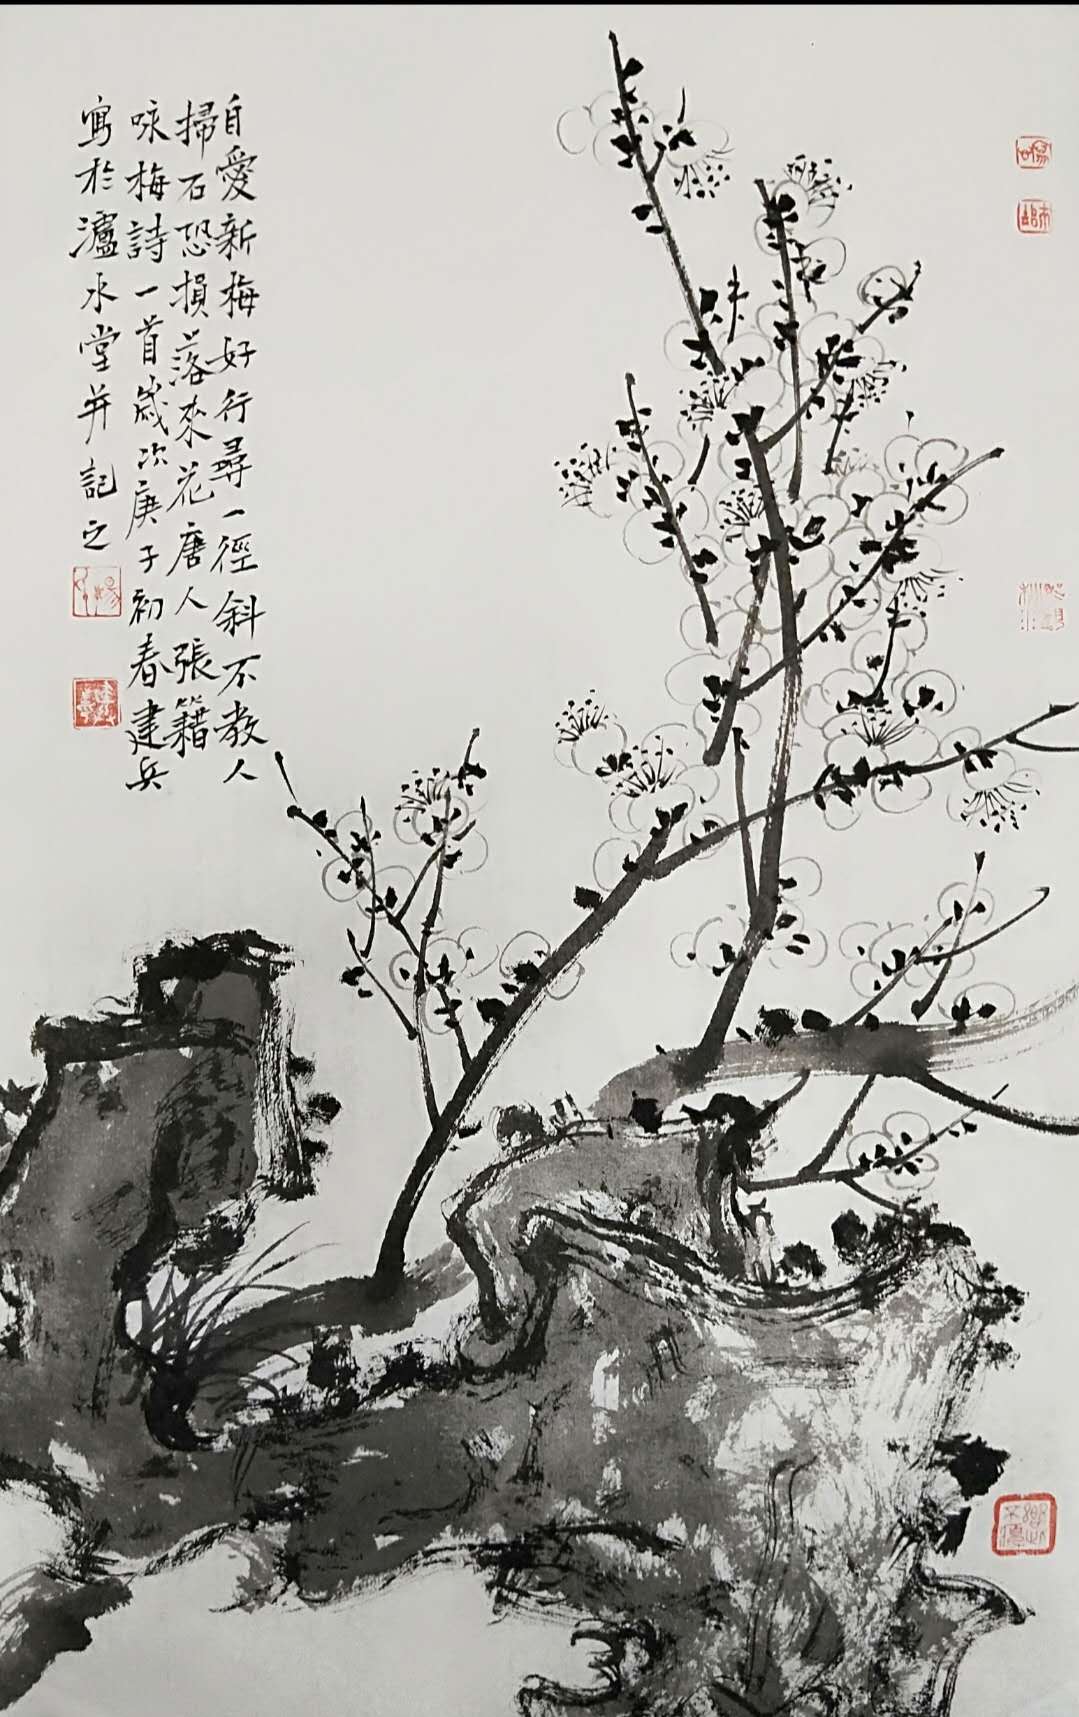 自愛新梅好行尋一徑斜不教人
掃石恐損落來花唐人張籍
咏梅詩一首歲次庚子初春建兵
寫於瀘水堂并記之